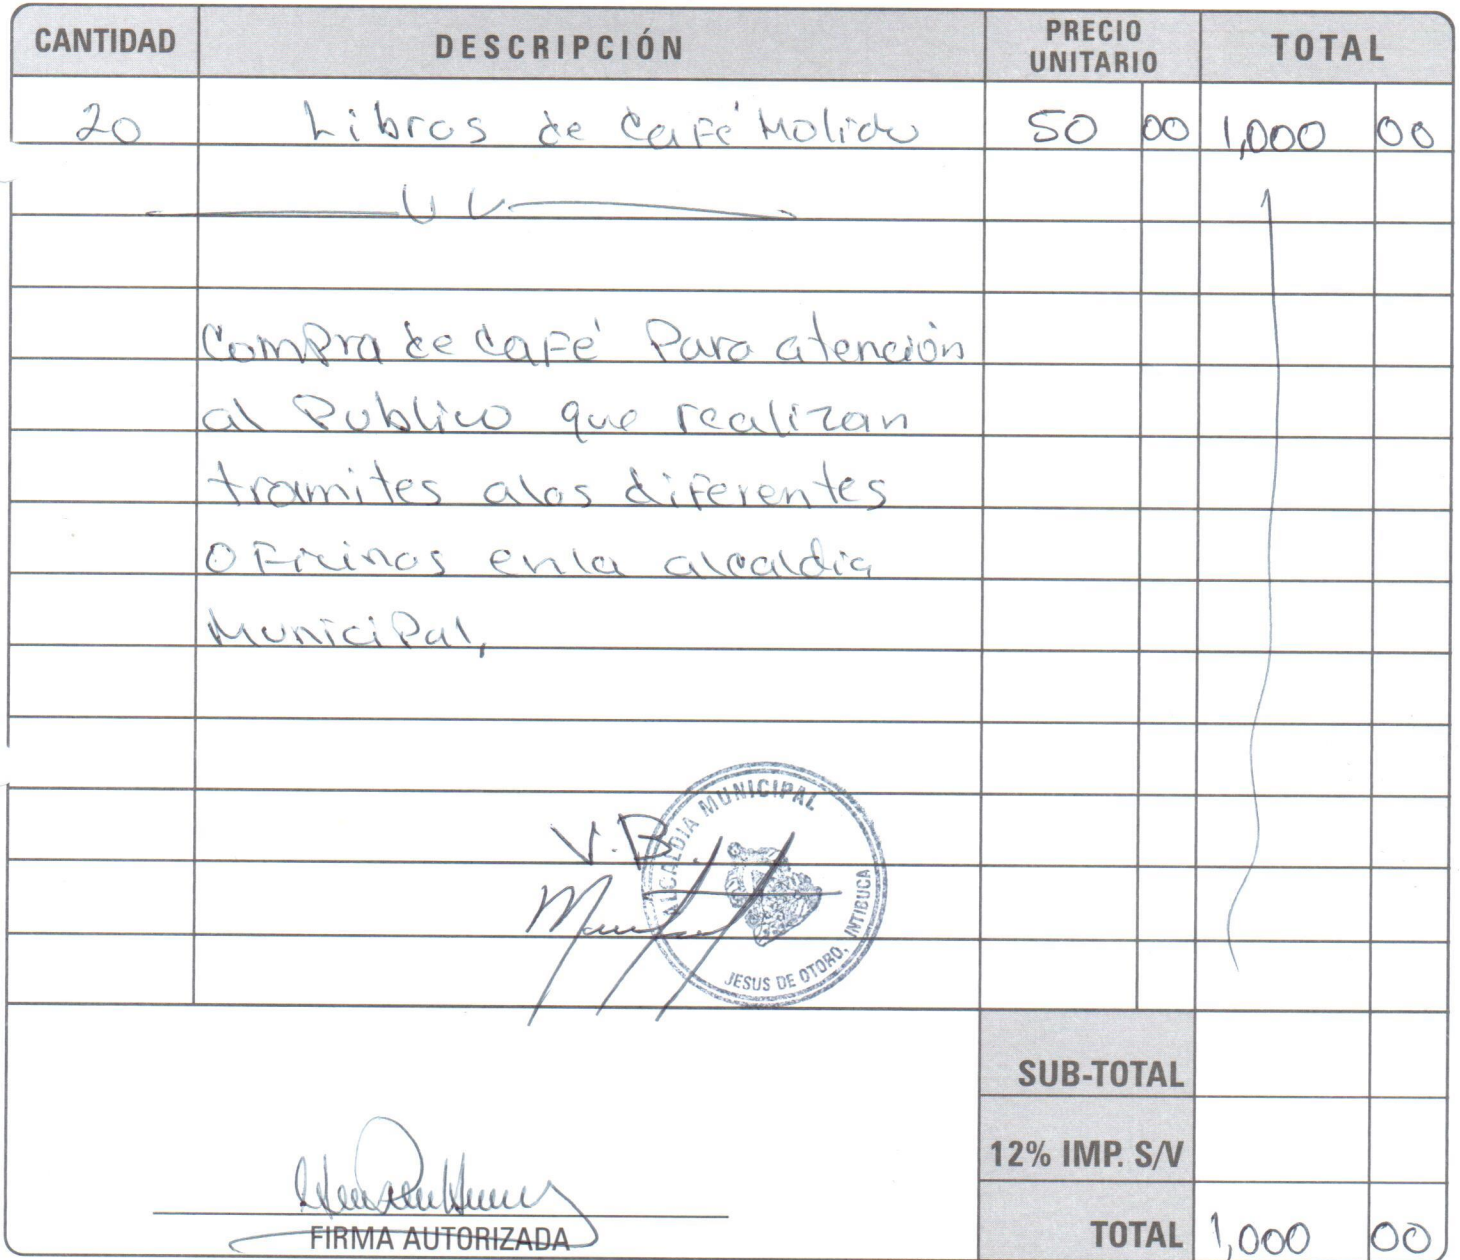 CANTIDAD DESCRIPCIÓN PRECIO UNITARIO TOTAL
20 Libras de Café Molido 50 00 1,000 00
Compra de Café Para atención
al Publico que realizan
tramites alas diferentes
oficinas enla alcaldia
Municipal,
V.B.
ALCALDIA MUNICIPAL
JESUS DE OTORO, INTIBUCA
SUB-TOTAL
12% IMP. S/V
FIRMA AUTORIZADA
TOTAL 1,000 00